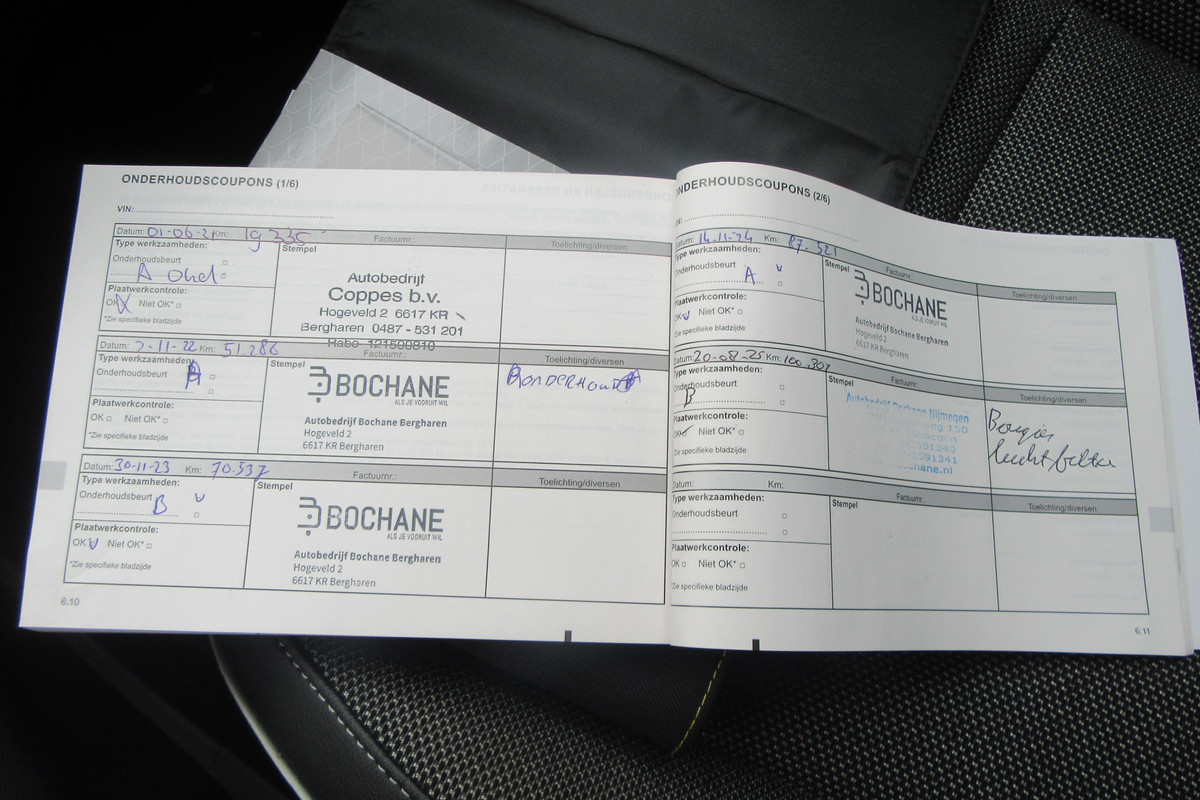 ONDERHOUDSCOUPONS (1/6)
VIN:
Datum: 01-06-21 Km: 19 235 Factuurnr.:
Type werkzaamheden: Stempel Toelichting/diversen
Onderhoudsbeurt
A
Plaatwerkcontrole:
OK Niet OK*
*Zie specifieke bladzijde
Autobedrijf
Coppes b.v.
Hogeveld 2 6617 KR
Bergharen 0487 - 531 201
Rabo 121500810
Datum: 2-11-22 Km: 51.286 Factuurnr.:
Type werkzaamheden: Stempel Toelichting/diversen
Onderhoudsbeurt A
Plaatwerkcontrole:
OK Niet OK*
*Zie specifieke bladzijde
BOCHANE
ALS JE VOORUIT WIL
Autobedrijf Bochane Bergharen
Hogeveld 2
6617 KR Bergharen
Datum: 30-11-23 Km: 70.537 Factuurnr.:
Type werkzaamheden: Stempel Toelichting/diversen
Onderhoudsbeurt
B
Plaatwerkcontrole:
OK Niet OK*
*Zie specifieke bladzijde
BOCHANE
ALS JE VOORUIT WIL
Autobedrijf Bochane Bergharen
Hogeveld 2
6617 KR Bergharen
6.10
ONDERHOUDSCOUPONS (2/6)
Datum: 14-11-24 Km: 87.521 Factuurnr.:
Type werkzaamheden: Stempel Toelichting/diversen
Onderhoudsbeurt
A
Plaatwerkcontrole:
OK Niet OK*
*Zie specifieke bladzijde
BOCHANE
ALS JE VOORUIT WIL
Autobedrijf Bochane Bergharen
Hogeveld 2
6617 KR Bergharen
Datum: 20-08-25 Km: 100.307 Factuurnr.:
Type werkzaamheden: Stempel Toelichting/diversen
Onderhoudsbeurt
B
Plaatwerkcontrole:
OK Niet OK*
*Zie specifieke bladzijde
Autobedrijf Bochane Nijmegen
150
Nijmegen
591341
hane.nl
luchtfilter
Datum: Km: Factuurnr.:
Type werkzaamheden: Stempel Toelichting/diversen
Onderhoudsbeurt
Plaatwerkcontrole:
OK Niet OK*
*Zie specifieke bladzijde
6.11